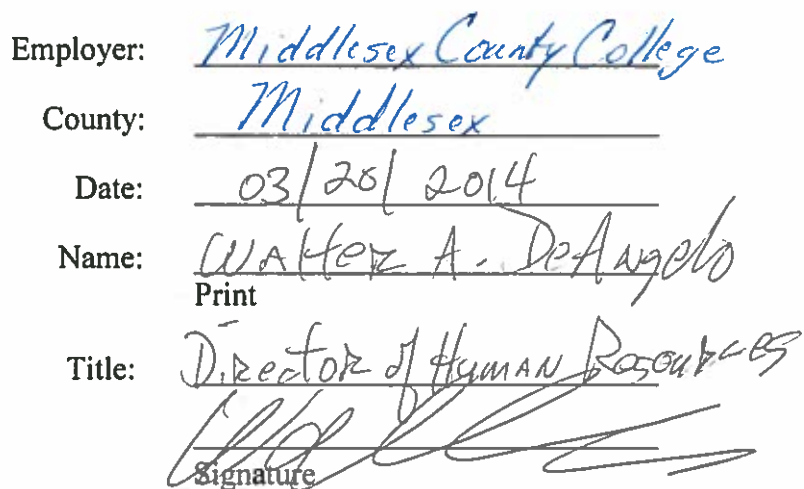 Employer: Middlesex County College
County: Middlesex
Date: 03/28/2014
Name: Walter A. DeAngelo
Print
Title: Director of Human Resources
Signature